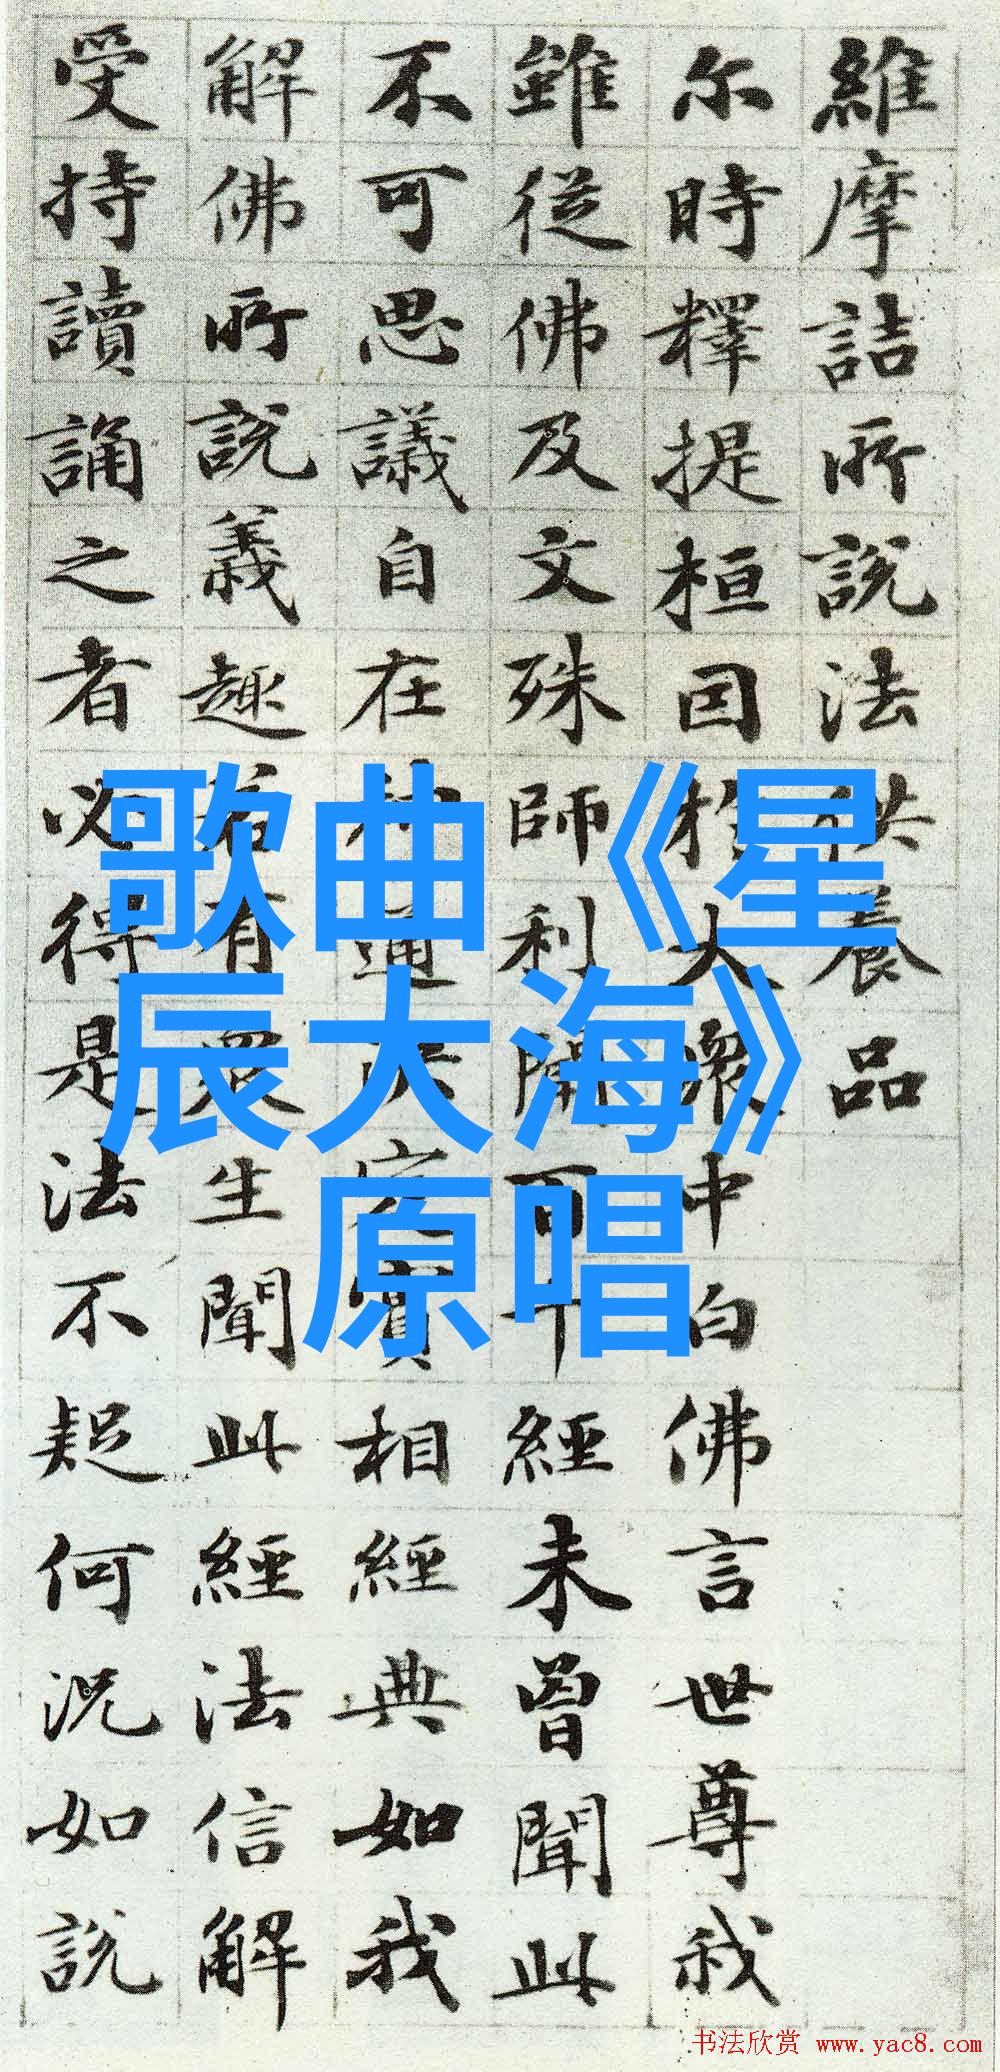 維摩詰所說法供養品
尔時釋提桓因於大眾中白佛言世尊我
雖從佛及文殊師利聞百千經未曾聞此
不可思議自在神通決定實相經典如我
解佛所說義趣若有眾生聞此經法信解
受持讀誦之者必得是法不疑何況如說
歌曲《星
辰大海》
原唱
书法欣赏 www.yac8.com